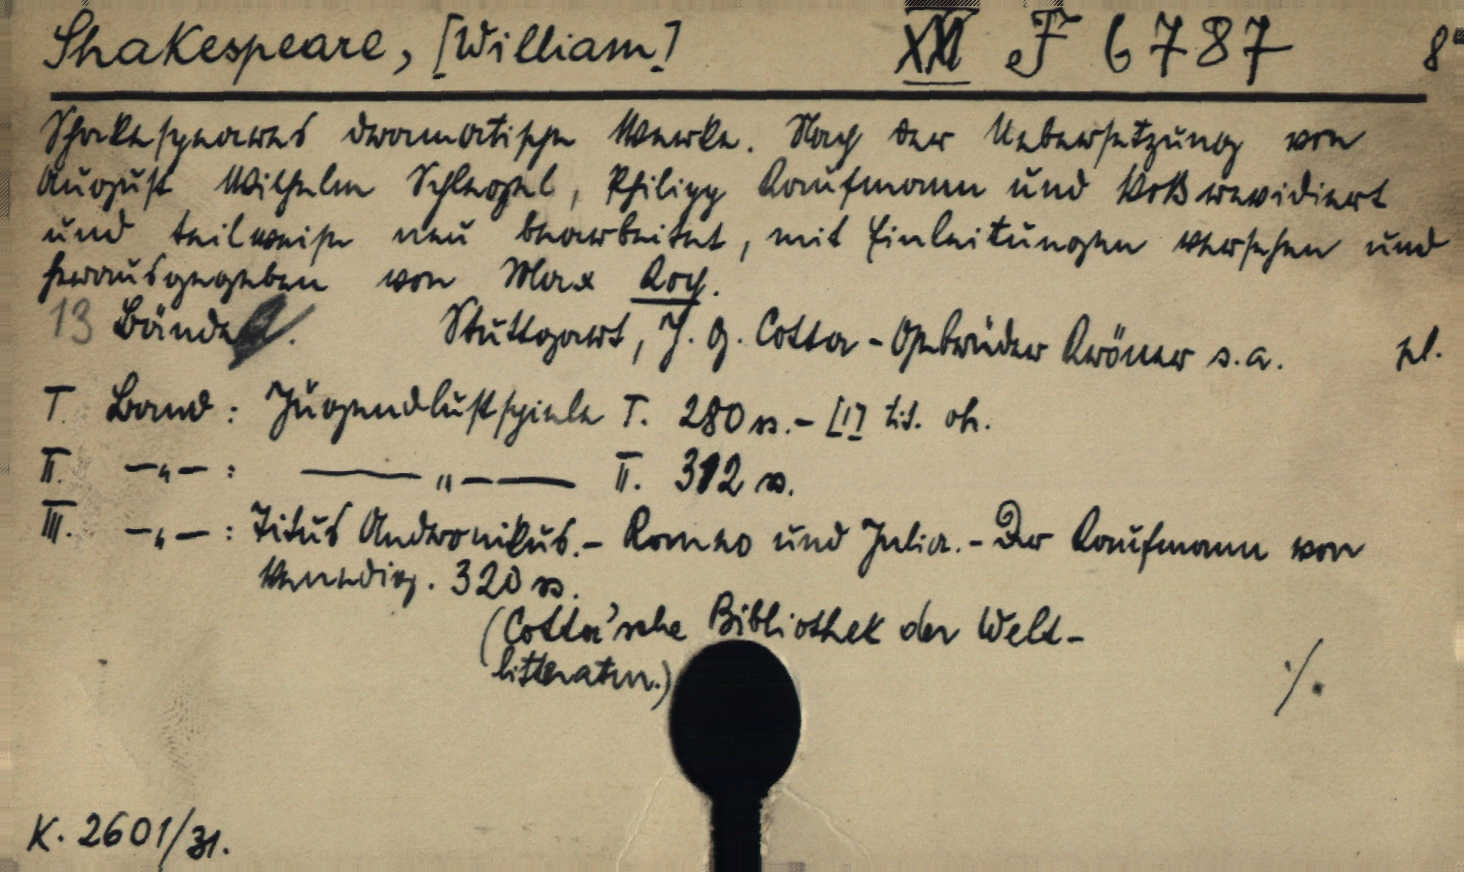 Shakespeare, [William] XXI F 6787 8°
Shakespeares dramatische Werke. Nach der Uebersetzung von
August Wilhelm Schlegel, Philipp Kaufmann und Voß revidiert
und teilweise neu bearbeitet, mit Einleitungen versehen und
herausgegeben von Max Koch.
13 Bände. Stuttgart, J. G. Cotta - Gebrüder Kröner s. a. pl.
I. Band: Jugendlustspiele I. 280 ss. - [1] tit. ok.
II. —„— : ——„—— II. 312 ss.
III. —„— : Titus Andronikus. - Romeo und Julia. - Der Kaufmann von
Venedig. 320 ss.
(Cotta'sche Bibliothek der Welt-
litteratur.) ./.
K. 2601/31.